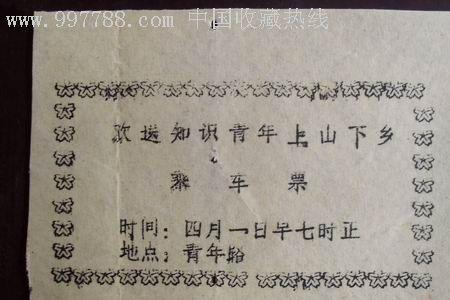 www.997788.com 中国收藏热线
欢送知识青年上山下乡
乘车票
时间：四月一日早七时正
地点：青年路